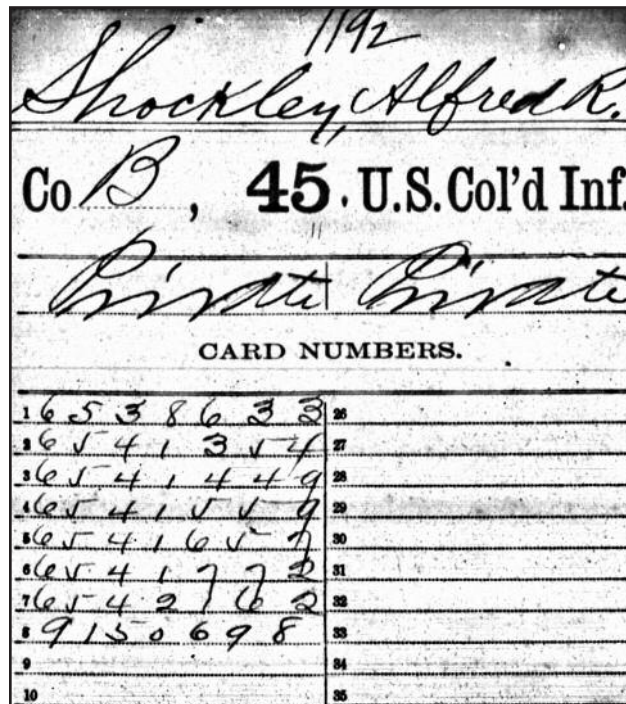 1192
Shockley, Alfred R.
Co B, 45 U.S. Col'd Inf.
Private Private
CARD NUMBERS.
1 6538633 26
2 6541354 27
3 6541449 28
4 6541559 29
5 6541657 30
6 6541772 31
7 6542162 32
8 9150698 33
9 34
10 35